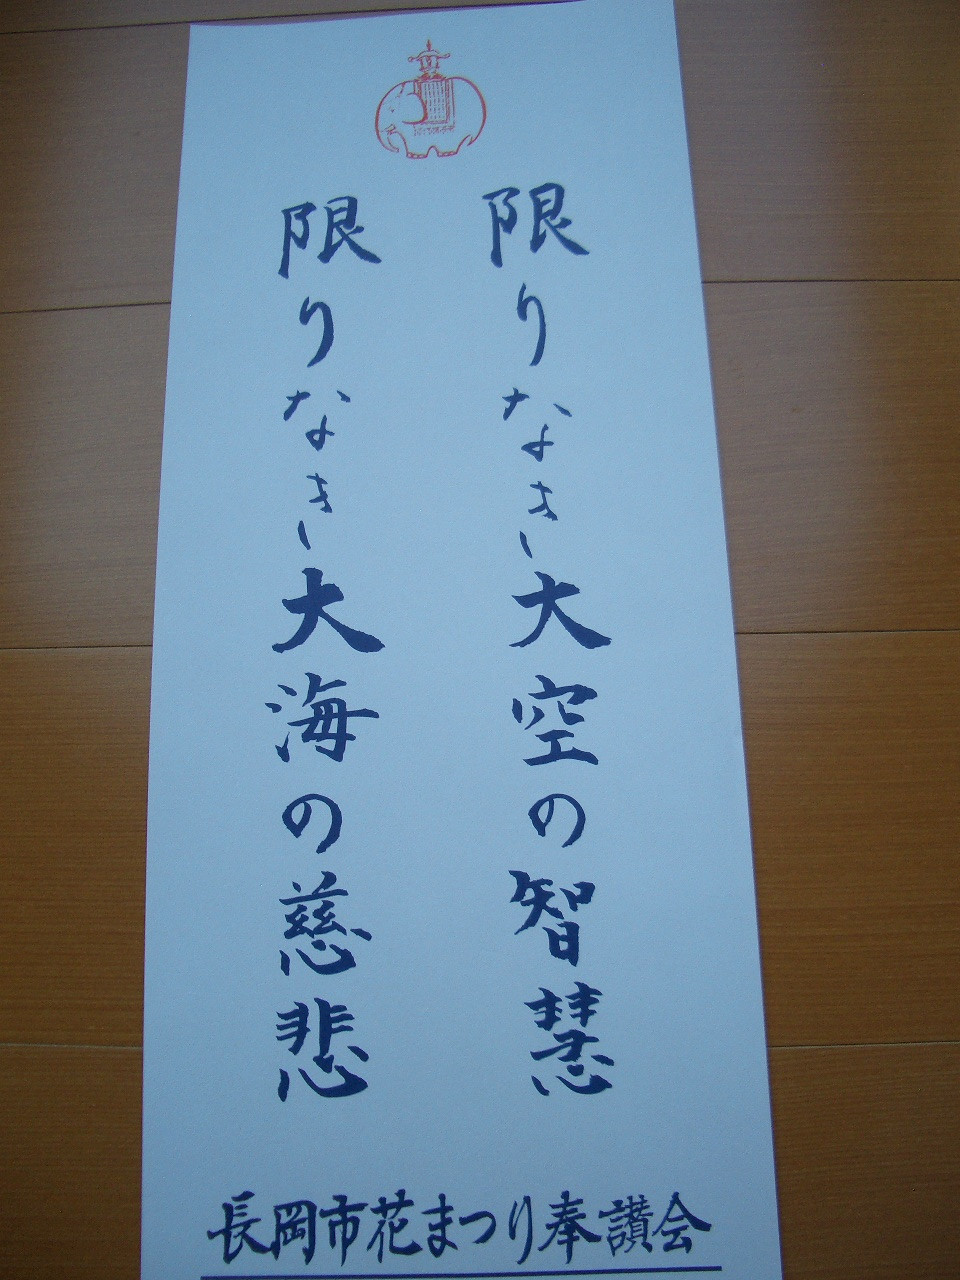 限りなき大空の智慧
限りなき大海の慈悲
長岡市花まつり奉讃会